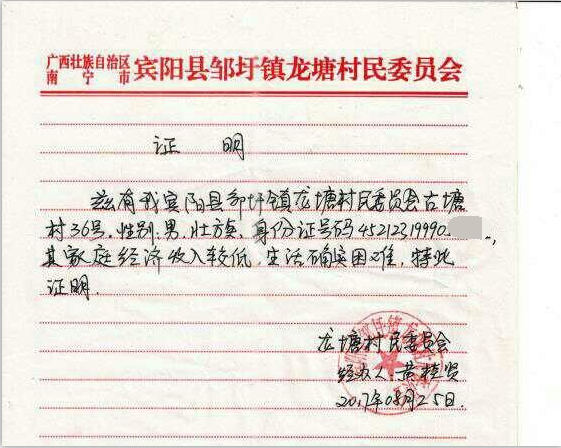 广西壮族自治区
南宁市
宾阳县邹圩镇龙塘村民委员会
证 明
兹有我宾阳县邹圩镇龙塘村民委员会古塘
村36号，性别：男，壮方族，身份证号码45212319990
其家庭经济收入较低，生活确实困难，特此
证明．
龙塘村民委员会
经办人：黄桂贤
2017年08月25日．